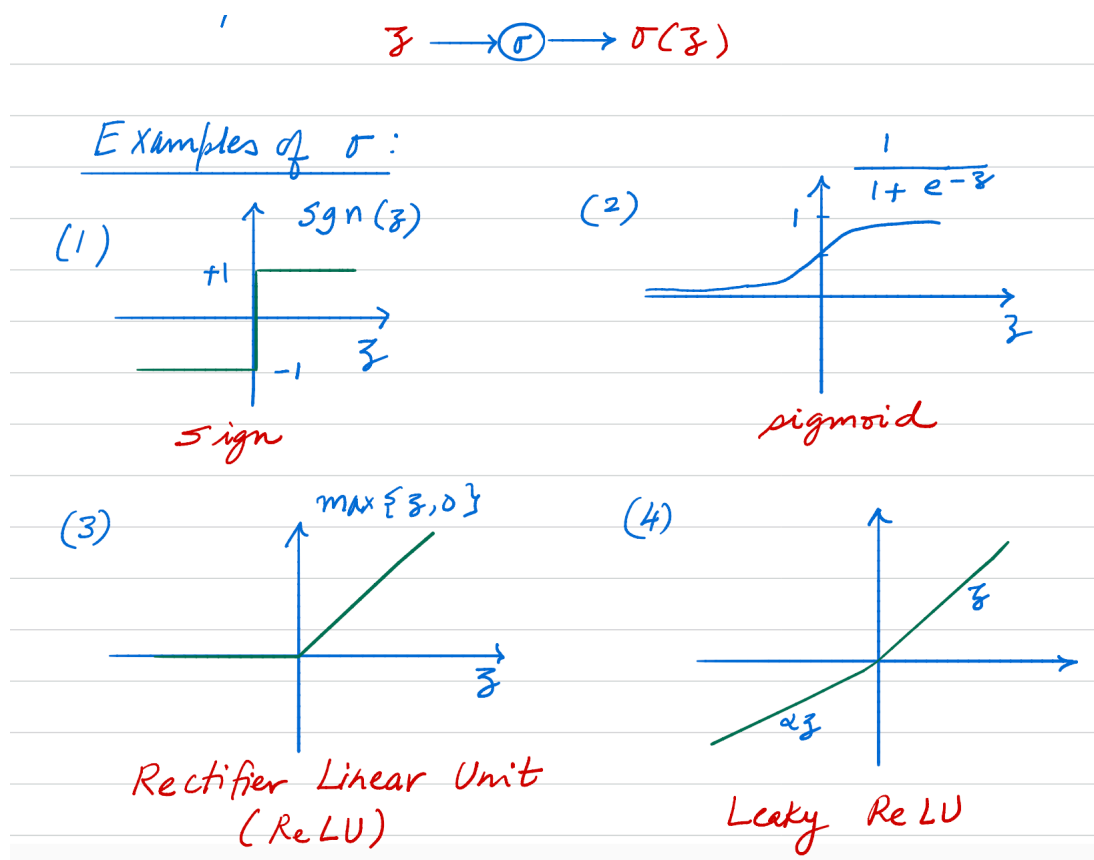 z → σ → σ(z)
Examples of σ:
(1)
sgn(z)
+1
z
-1
sign
(2)
1
1 + e-z
1
z
sigmoid
(3)
max{z,0}
z
Rectifier Linear Unit
(ReLU)
(4)
z
αz
Leaky ReLU